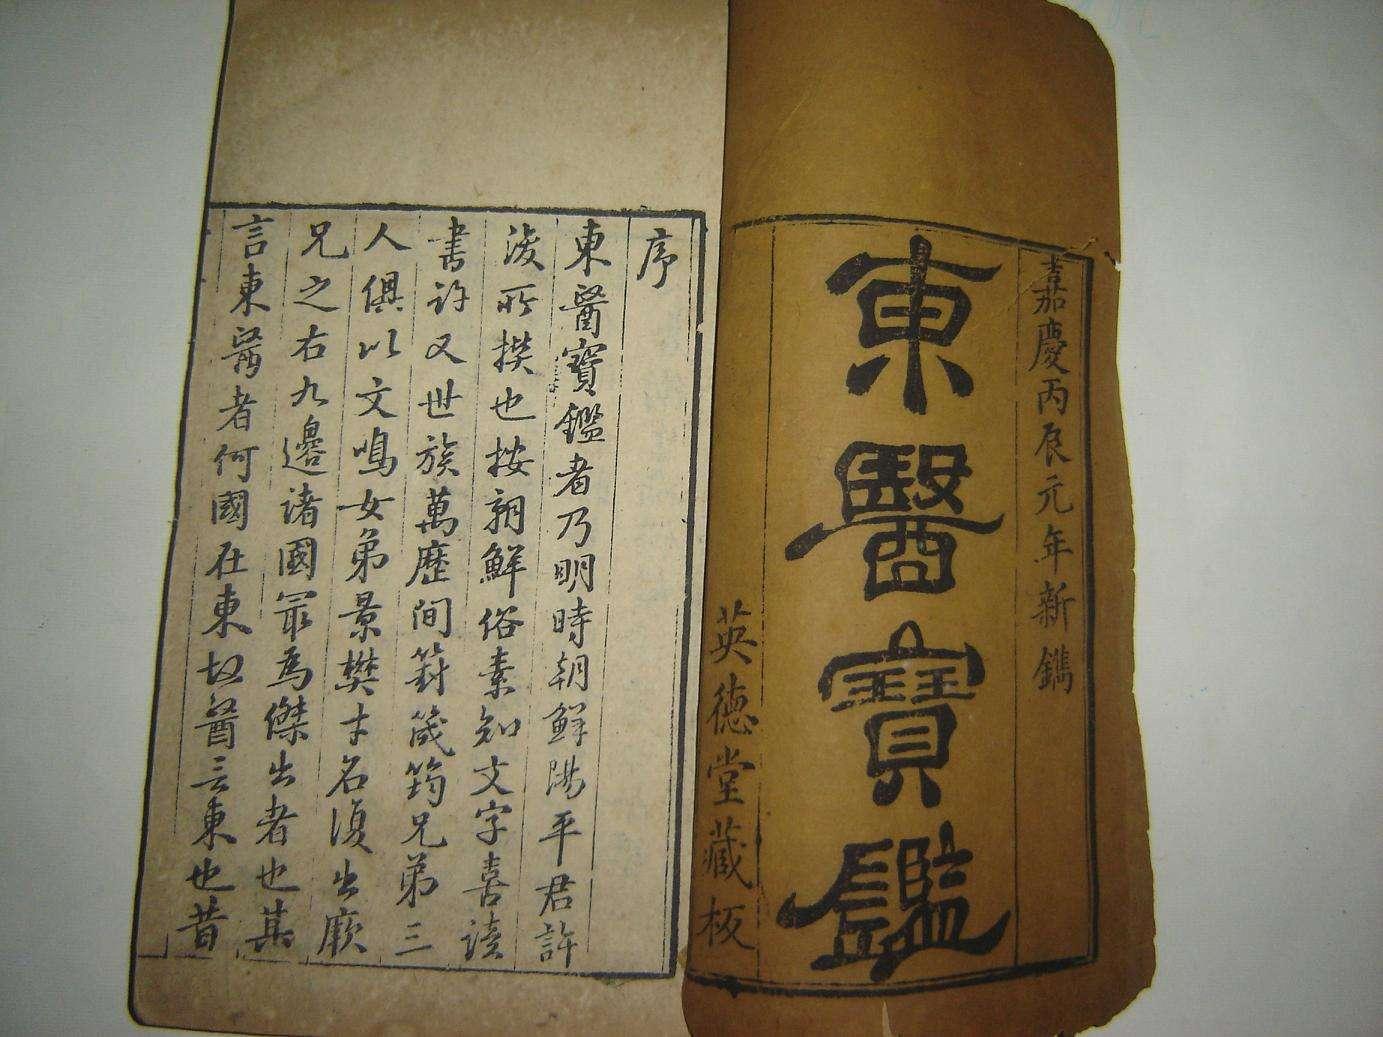 嘉慶丙辰元年新鐫
東醫寶鑑
英德堂藏板
序
東醫寶鑑者乃明時朝鮮陽平君許
浚所撰也按朝鮮俗素知文字喜讀
書許又世族萬歷間篈筬筠兄弟三
人俱以文鳴女弟景樊才名復出厥
兄之右九邊諸國最為傑出者也其
言東醫者何國在東故醫言東也昔